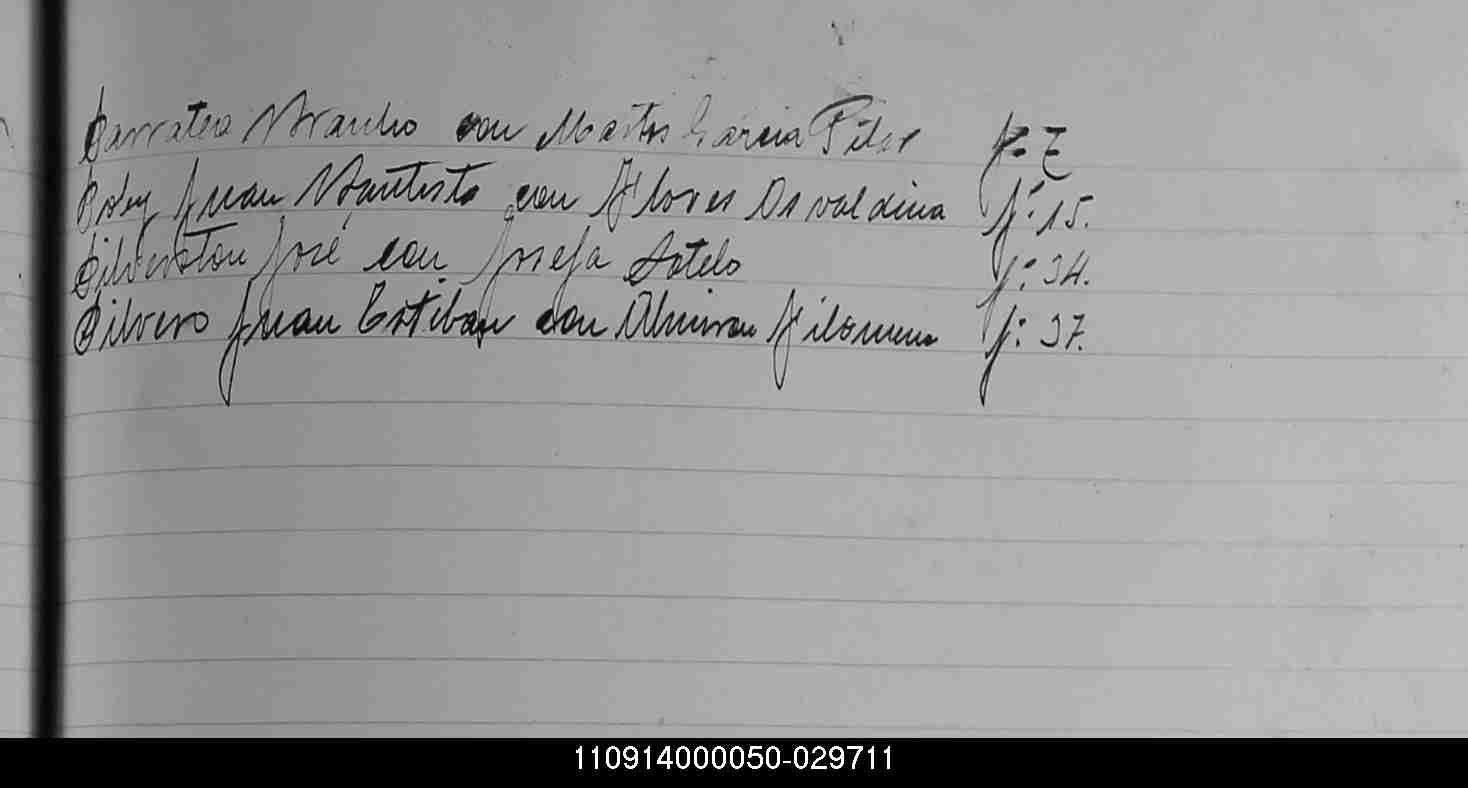 Sarratea Braulio con Martos Garcia Pilar f: 7
Juan Bautista con Flores Osvaldina f: 15.
Silverston José con Josefa Sotelo f: 34.
Silvero Juan Esteban con Almiron Filomena f: 37.
110914000050-029711